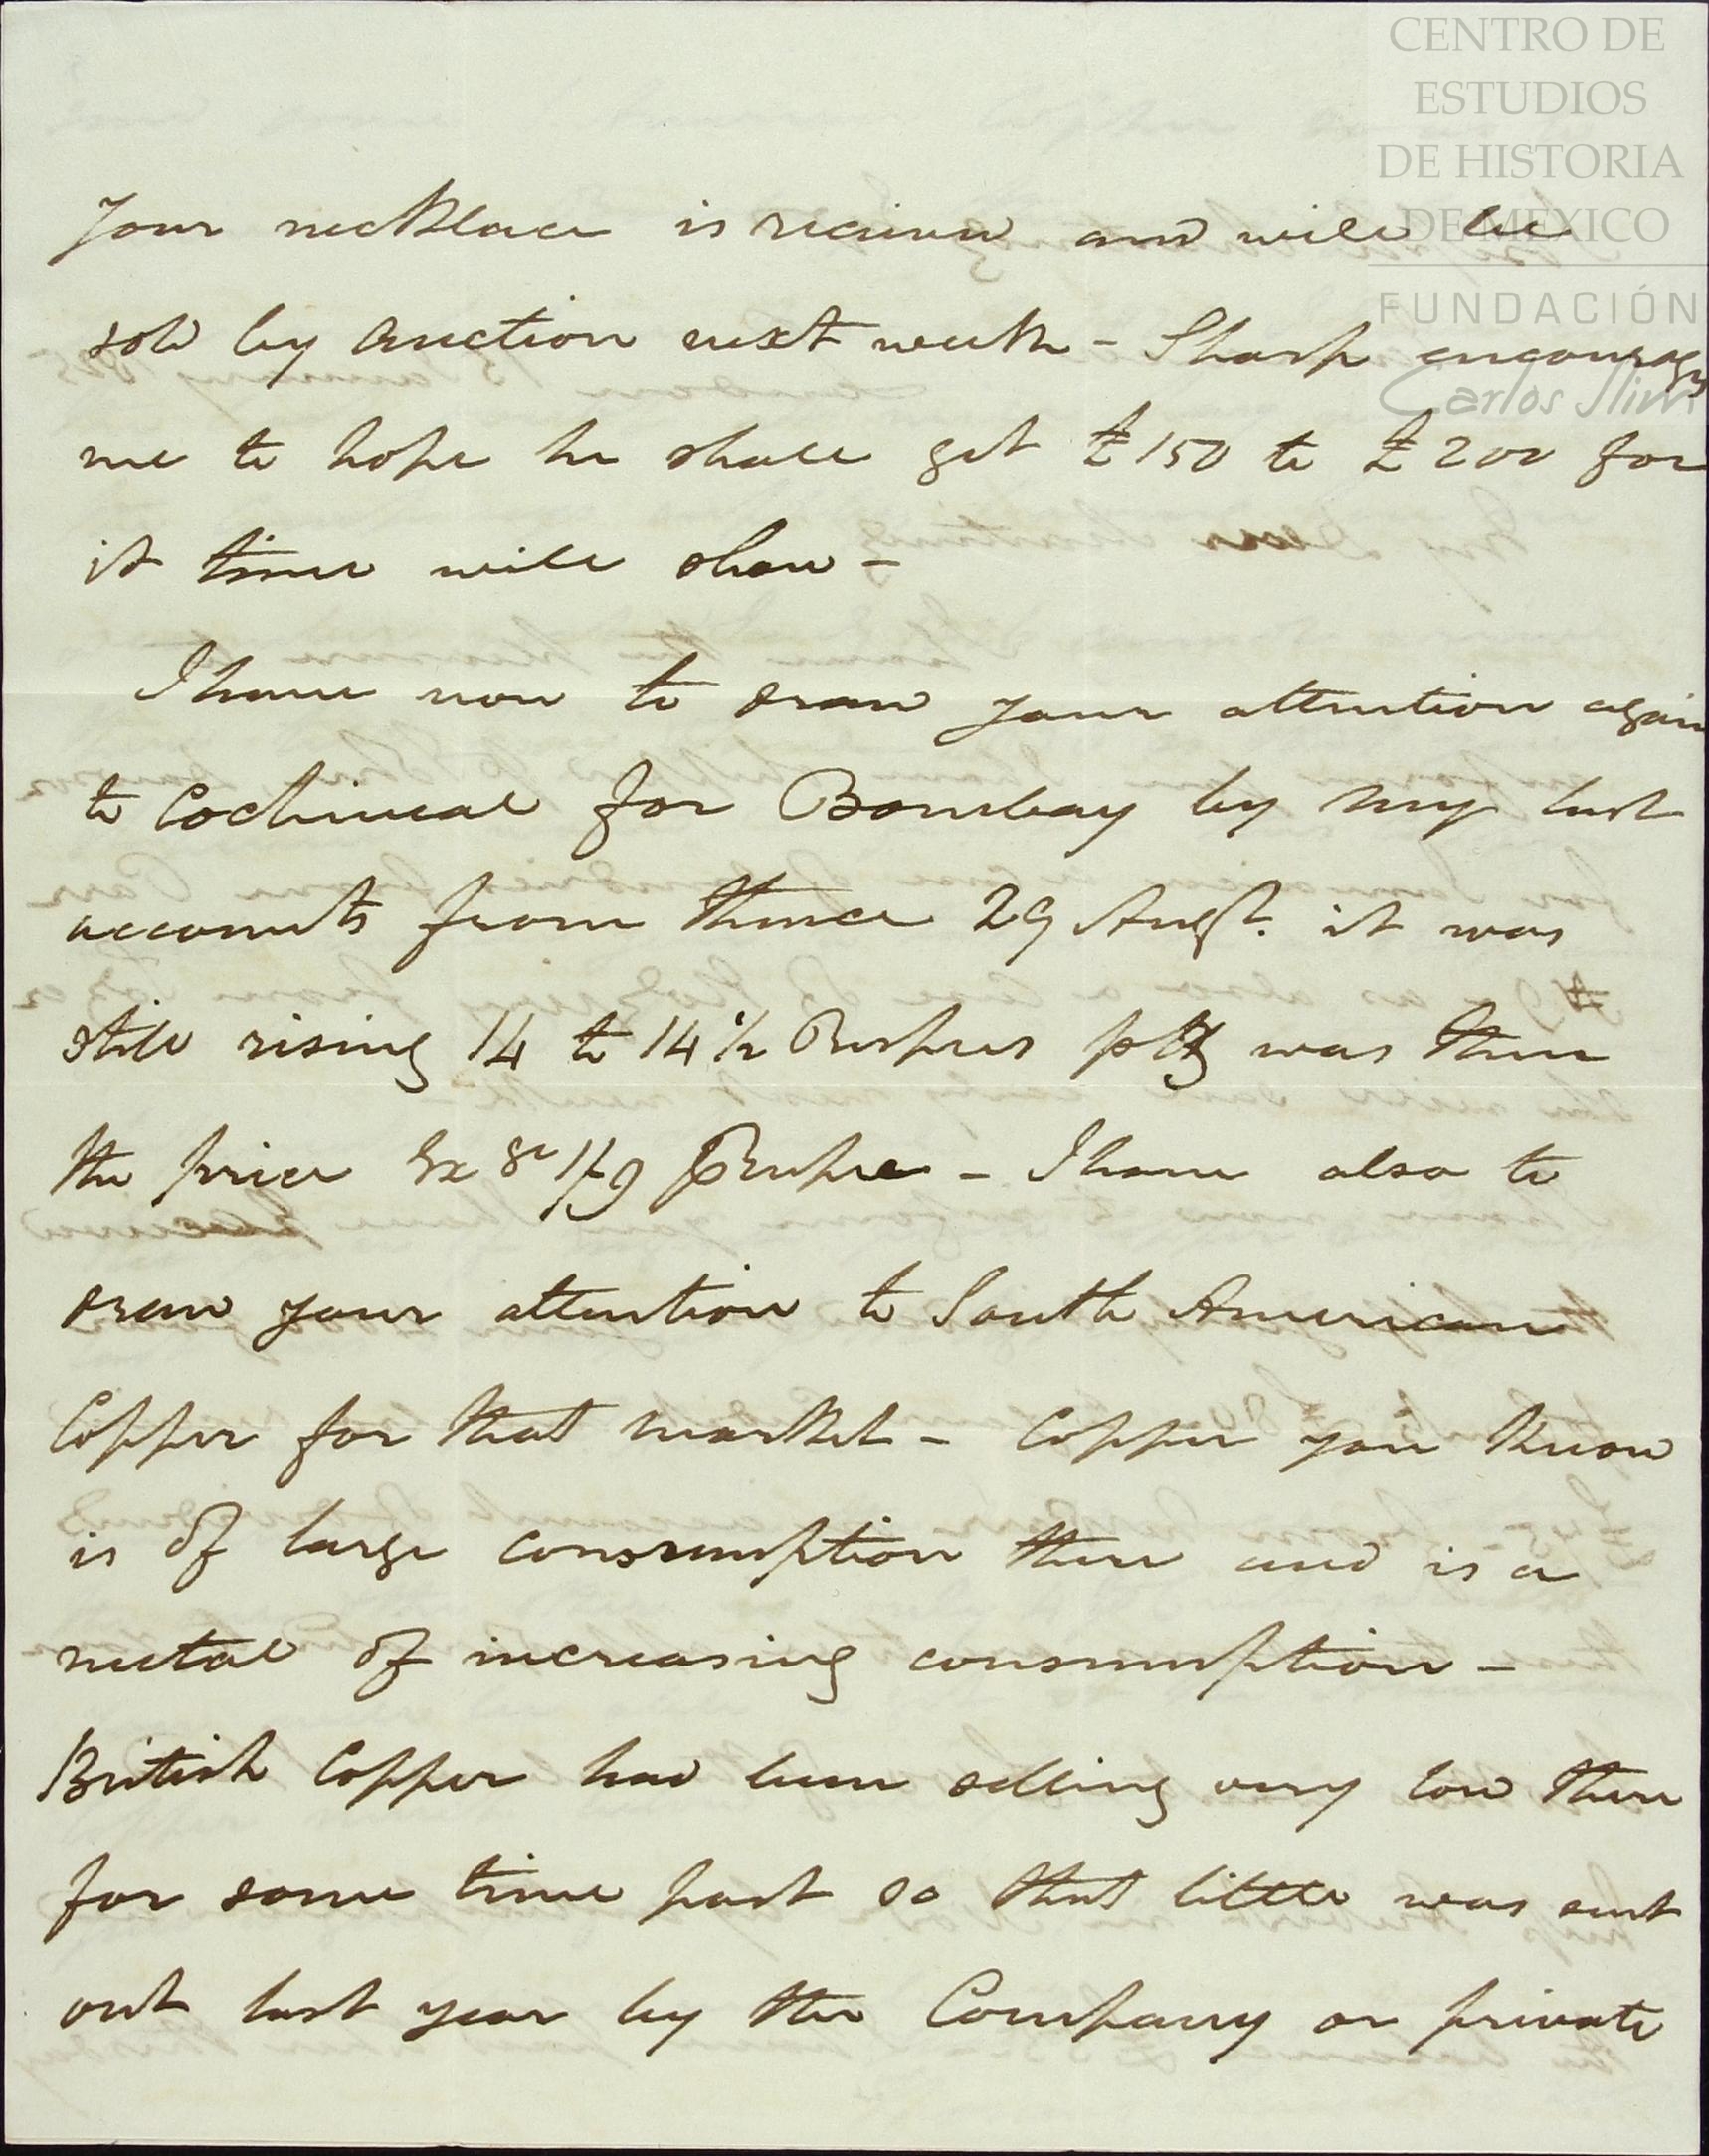 CENTRO DE
ESTUDIOS
DE HISTORIA
DE MEXICO
FUNDACIÓN
Carlos Slim
Your necklace is received and will be
sold by auction next week - Sharp encourages
me to hope he shall get £150 to £200 for
it time will show -
I have now to draw your attention again
to Cochineal for Bombay by my last
accounts from thence 29 Augt. it was
still rising 14 to 14 1/2 Rupees p lb was then
the price Ex 1/9 p Rupee - I have also to
draw your attention to South American
Copper for that market - Copper you know
is of large consumption there and is a
metal of increasing consumption -
British Copper had been selling very low there
for some time past so that little was sent
out last year by the Company or private